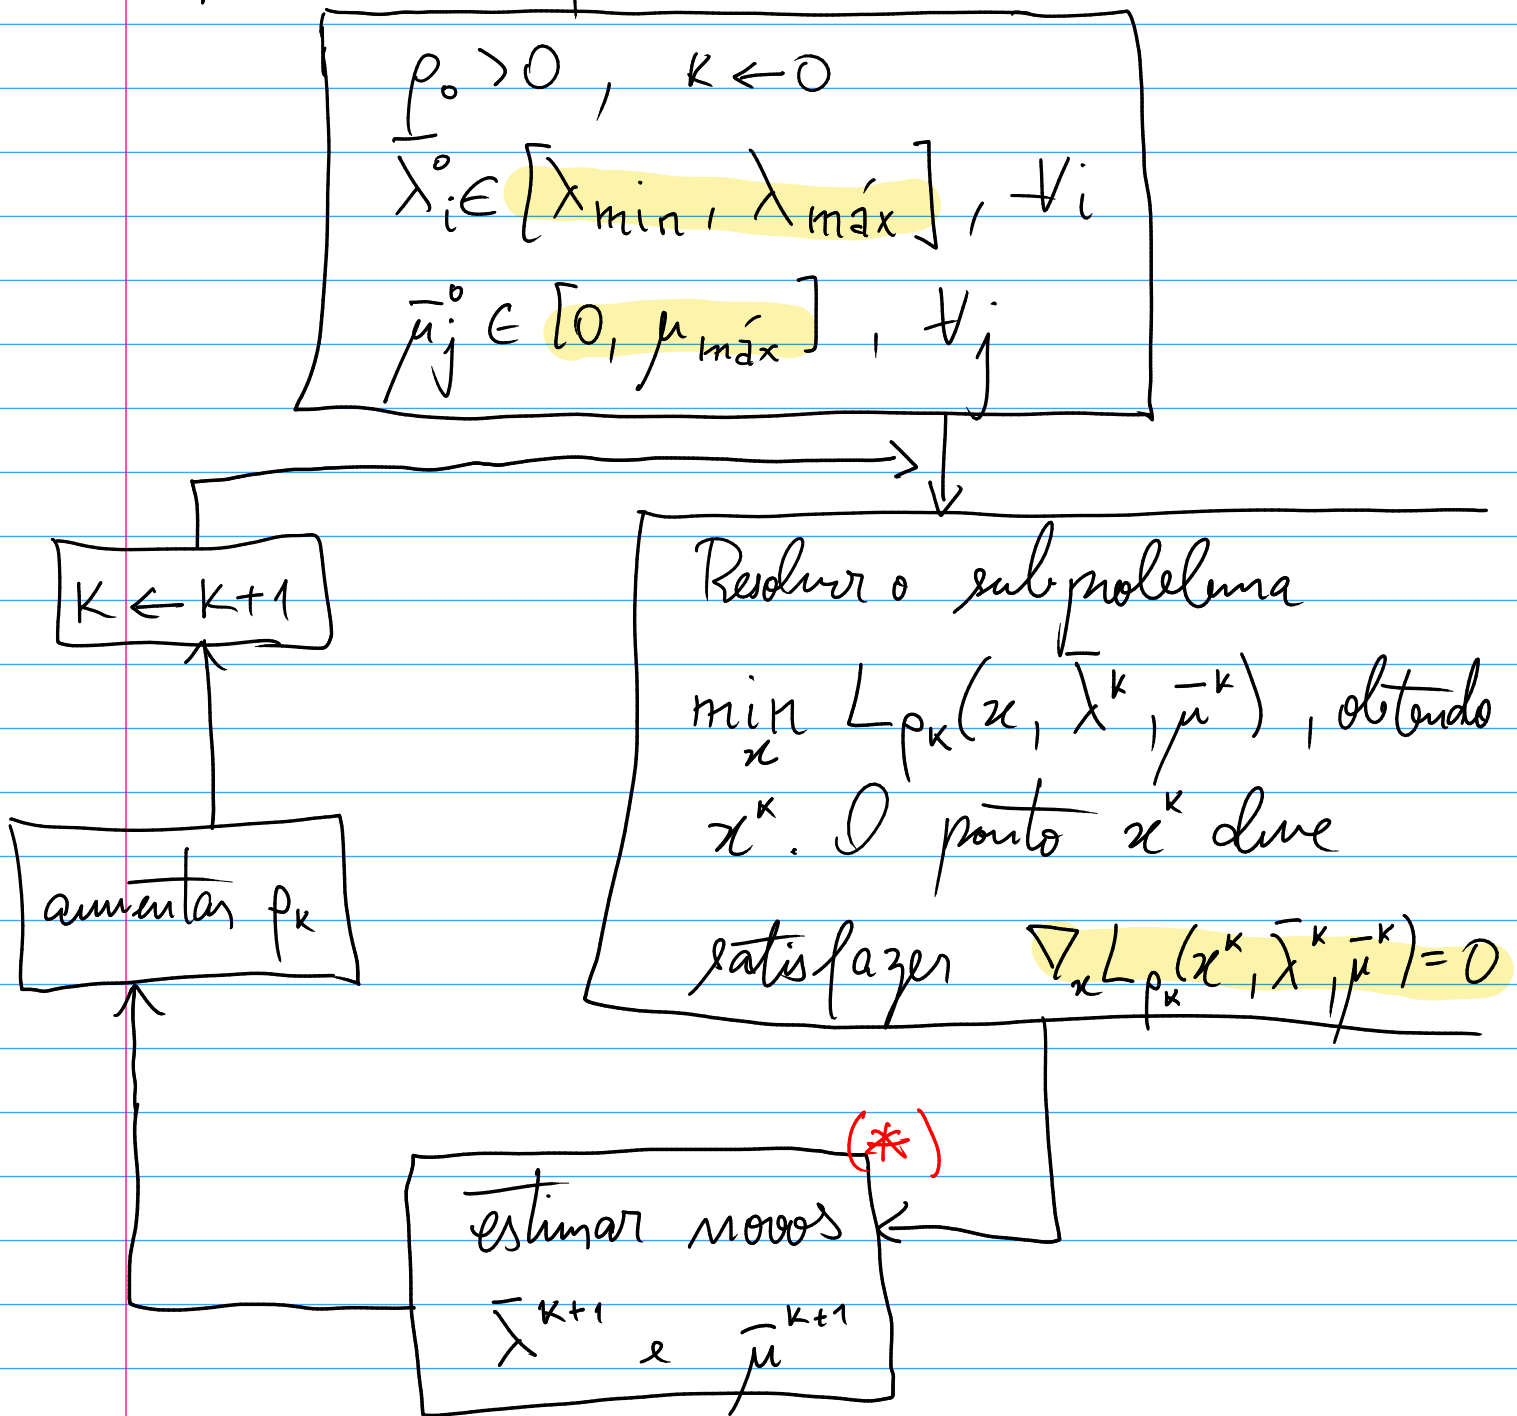 ρ₀ > 0 , k ← 0
λ̄ᵢ⁰ ∈ [λmin, λmáx] , ∀i
μ̄ⱼ⁰ ∈ [0, μmáx] , ∀j
k ← k+1
Resolver o subproblema
min L_ρₖ(x, λ̄ᵏ, μ̄ᵏ) , obtendo
x
xᵏ. O ponto xᵏ deve
satisfazer ∇ₓL_ρₖ(xᵏ, λ̄ᵏ, μ̄ᵏ) = 0
aumentar ρₖ
(*)
estimar novos
λ̄ᵏ⁺¹ e μ̄ᵏ⁺¹